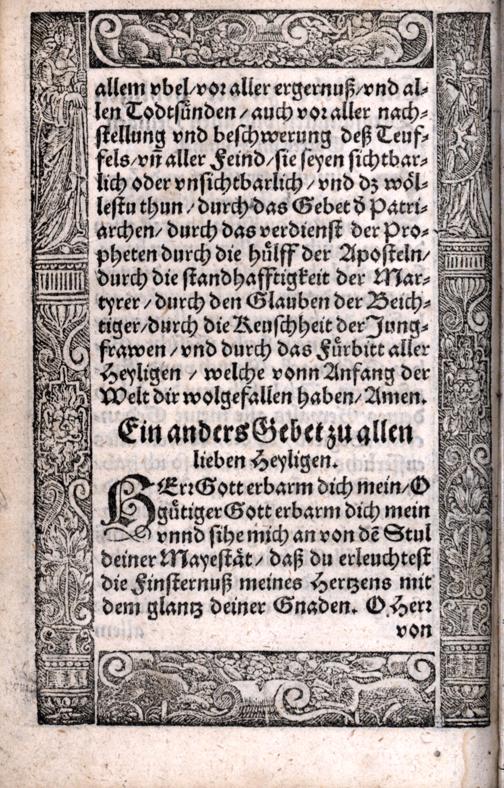 allem vbel/vor aller ergernuß/vnd al-
len Todtsünden/auch vor aller nach-
stellung vnd beschwerung deß Teuf-
fels/vñ aller Feind/sie seyen sichtbar-
lich oder vnsichtbarlich/vnd dz wöl-
lestu thun/durch das Gebet d̄ Patri-
archen/durch das verdienst der Pro-
pheten durch die hülff der Aposteln/
durch die standhafftigkeit der Mar-
tyrer/durch den Glauben der Beich-
tiger/durch die Keuschheit der Jung-
frawen/vnd durch das Fürbitt aller
Heyligen/welche vonn Anfang der
Welt dir wolgefallen haben/Amen.
Ein anders Gebet zu allen
lieben Heyligen.
HErr Gott erbarm dich mein/O
gütiger Gott erbarm dich mein
vnnd sihe mich an von dē Stul
deiner Mayestät/daß du erleuchtest
die Finsternuß meines Hertzens mit
dem glantz deiner Gnaden. O Herr
von